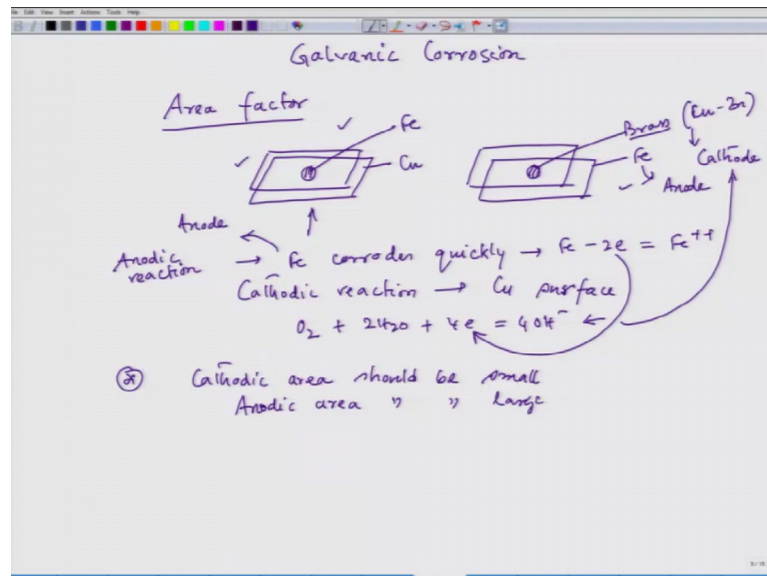 File Edit View Insert Actions Tools Help
Galvanic Corrosion
Area factor
Fe
Cu
Brass (Cu-Zn)
Fe
Cathode
Anode
Anode
Anodic reaction → Fe corrodes quickly → Fe - 2e = Fe++
Cathodic reaction → Cu surface
O2 + 2H2O + 4e = 4OH- ←
Cathodic area should be small
Anodic area " " large